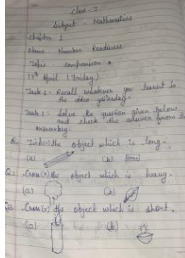 Class - I
Subject - Mathematics
Chapter 1
Name Number Readiness
Topic comparison
13th April (Tuesday)
Task 1 - Recall whatever you learnt in
the video yesterday.
Task 2 - Solve the question given below
and check the answer given in
Q1. Tick (✓) the object which is long.
(a)
(b)
Q2. Cross (x) the object which is heavy.
(a)
(b)
Q3. Cross (x) the object which is short.
(a)
(b)